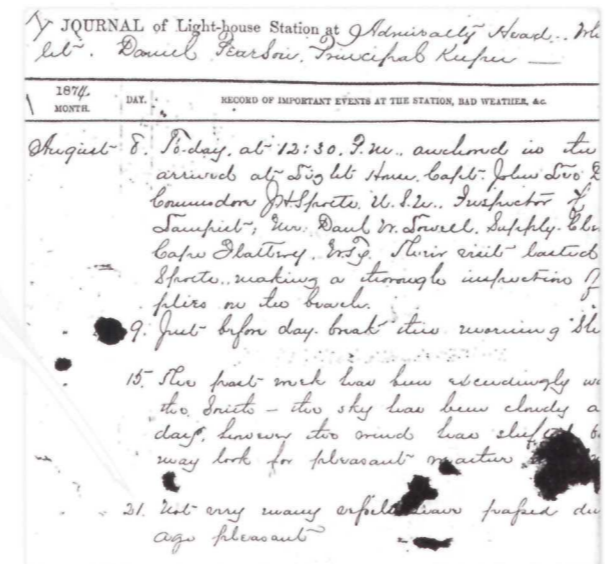 JOURNAL of Light-house Station at Admiralty Head. Whi
bey. Daniel Pearson, Principal Keeper —
1874.
MONTH. DAY. RECORD OF IMPORTANT EVENTS AT THE STATION, BAD WEATHER, &c.
August 8. To-day, at 12:30. P.M., anchored in the
arrived at Light House, Capt. John
Commodore U.S.N. Inspector
Lampist, Mr. Danl W. Lowell, Supply
Cape Flattery, W.Ty. Their visit lasted
making a thorough inspection
plies on the beach.
9. Just before day-break this morning
15. The past week has been exceedingly
the — the sky has been cloudy a
day, however the wind has shifted
may look for pleasant weather
21. Not very many have passed du
ago pleasant